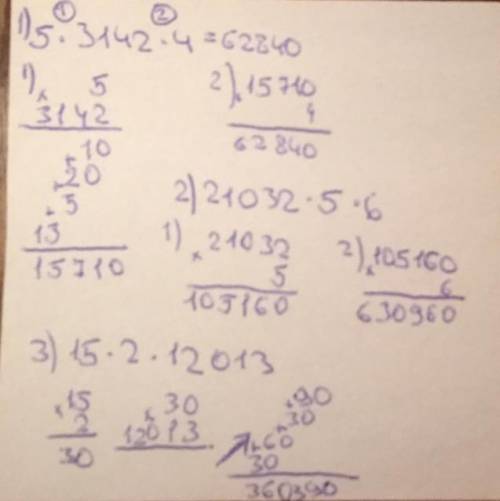 ① ②
1) 5 · 3142 · 4 = 62840
1) × 5
3142
10
+ 20
+ 5
15
15710
2) × 15710
4
62840
2) 21032 · 5 · 6
1) × 21032
5
105160
2) × 105160
6
630960
3) 15 · 2 · 12013
× 15
2
30
× 30
12013
+ 90
+ 30
+ 60
30
360390